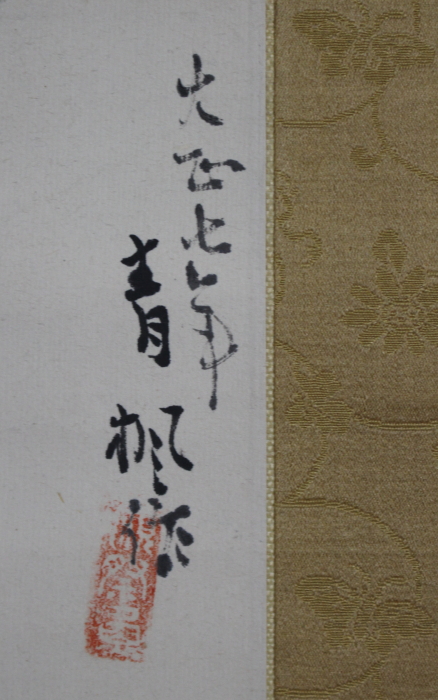 大正七年
青楓作